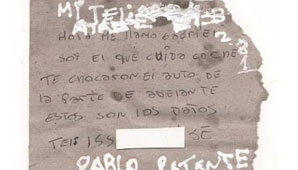 MI TELI
HOLA ME LLAMO GABRIEL
SOY EL QUE CUIDA COCHE
TE CHOCARON EL AUTO DE
LA PARTE DE ADELANTE
ESTOS SON LOS DATOS
TELI 155 SE
PABLO PATENTE
221